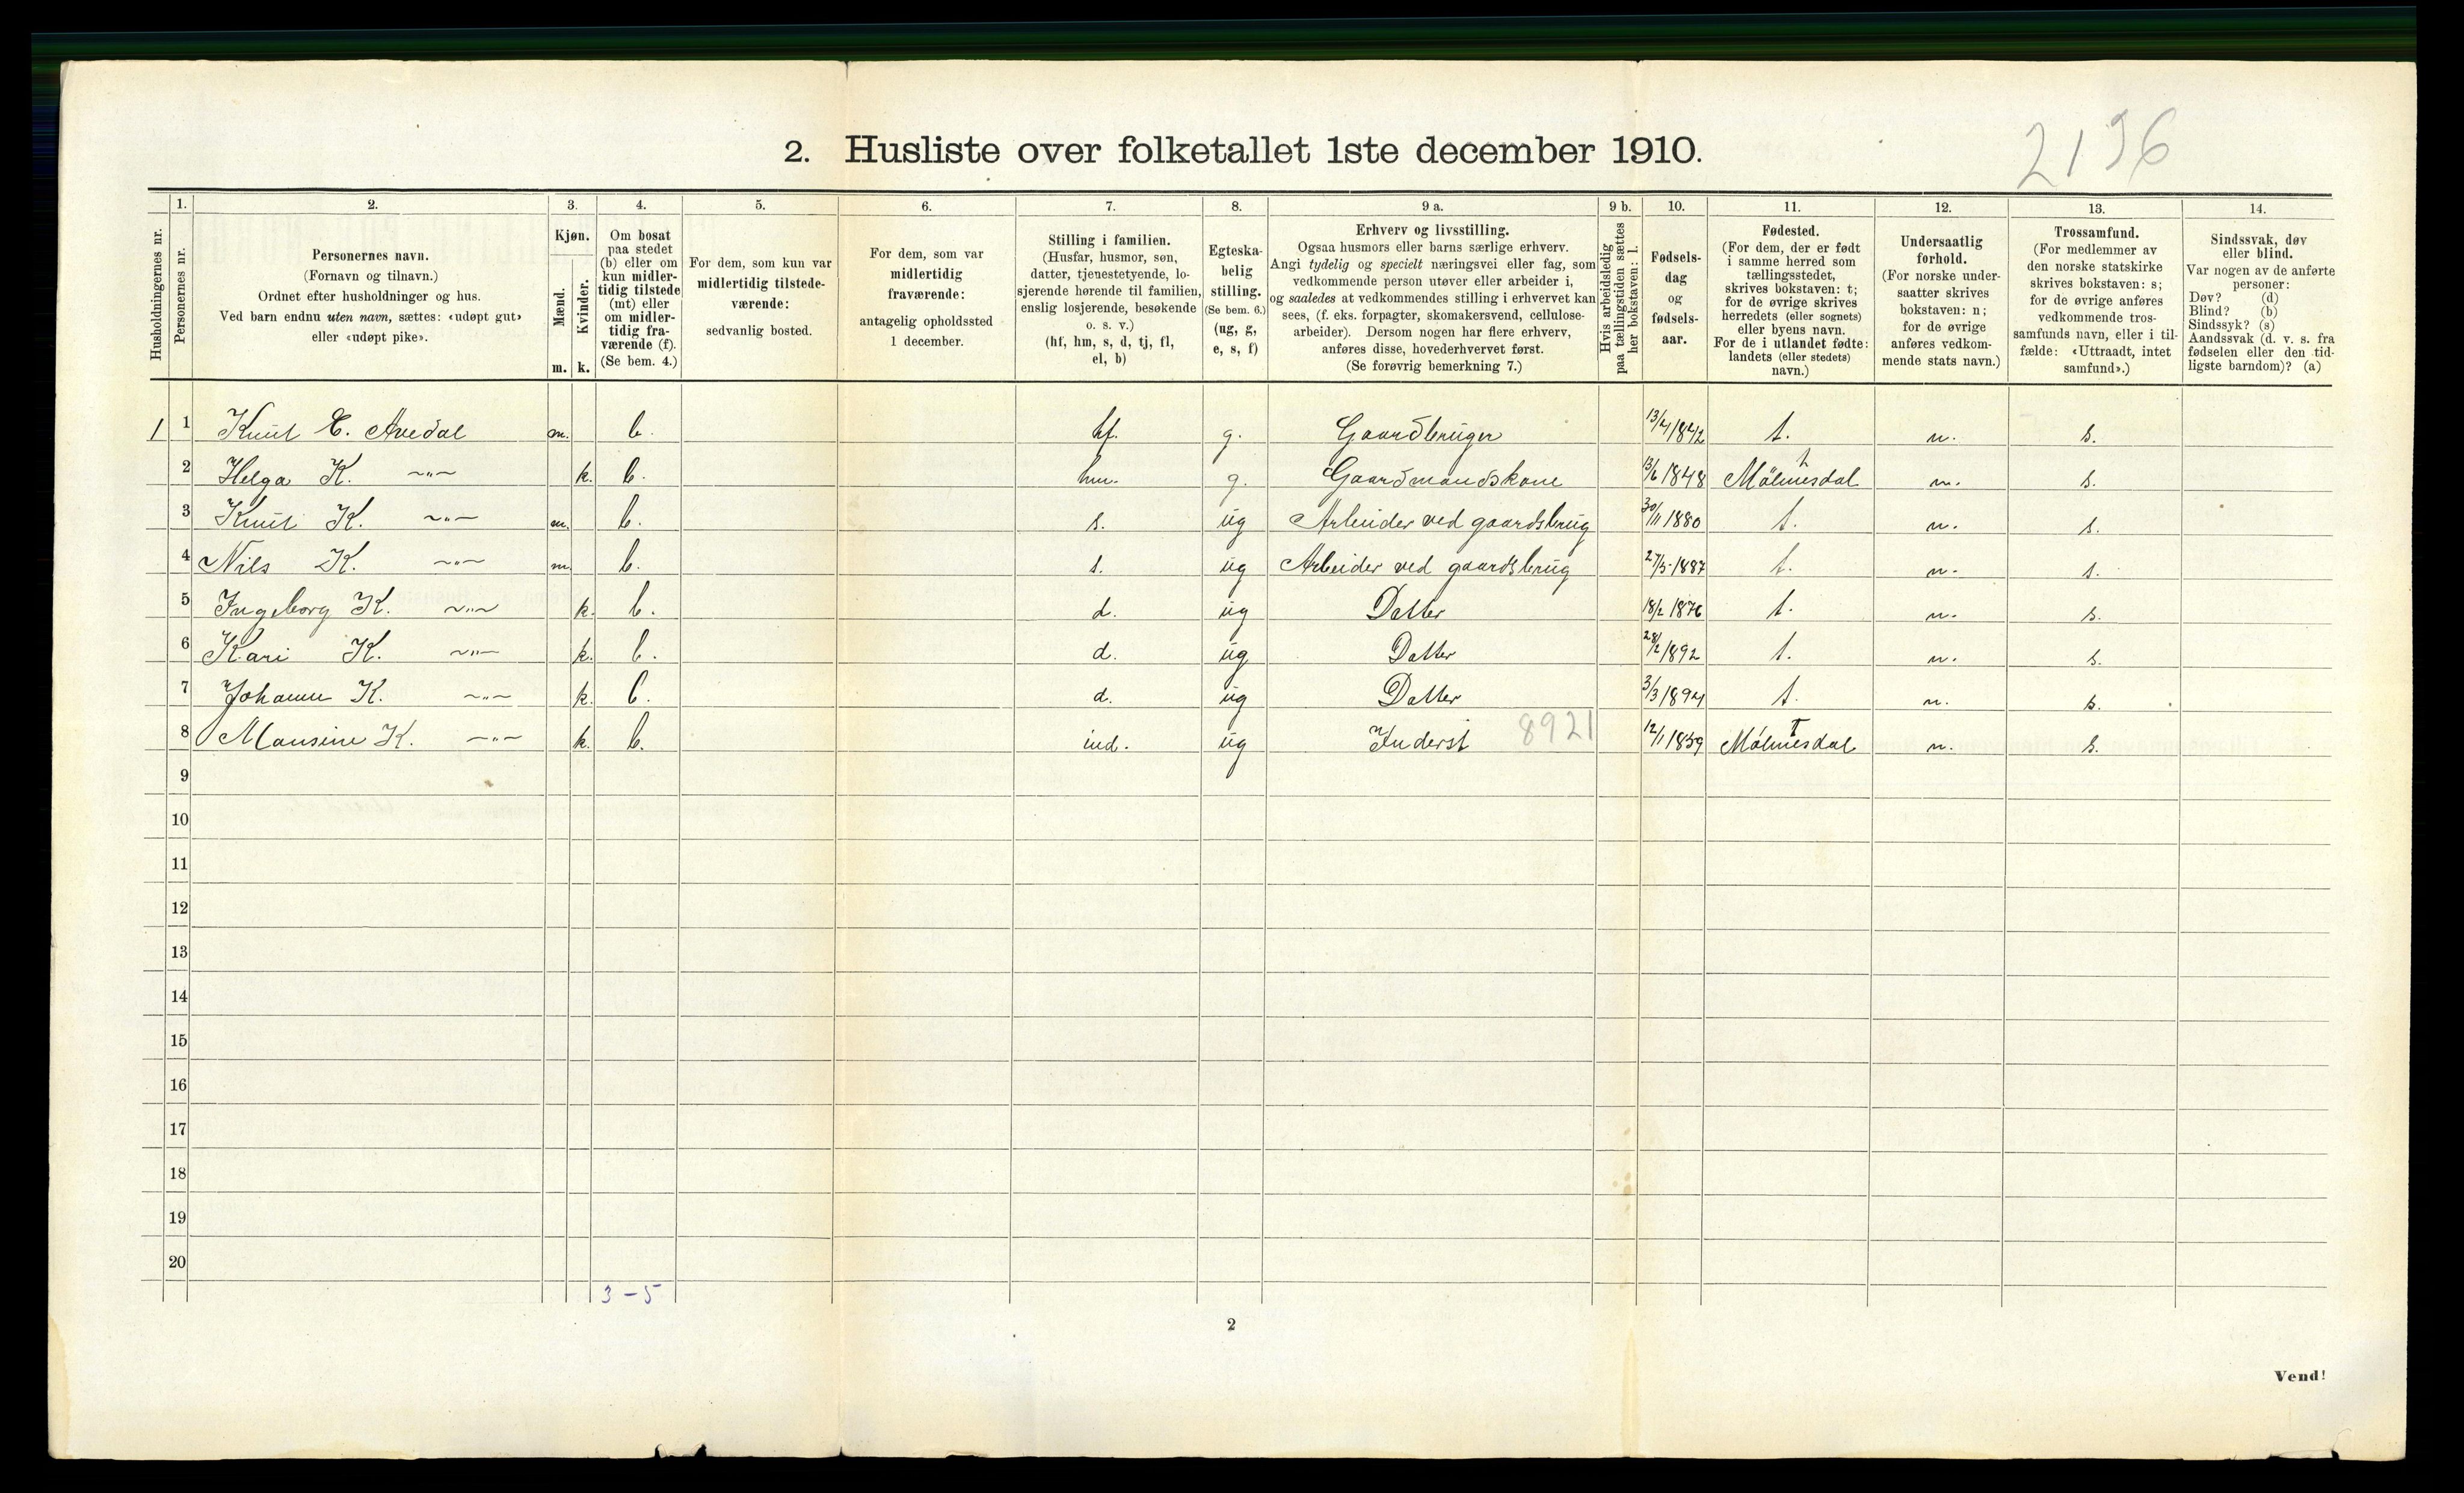 2. Husliste over folketallet 1ste december 1910.
2136
1. 2. 3. 4. 5. 6. 7. 8. 9 a. 9 b. 10. 11. 12. 13. 14.
Husholdningernes nr.
Personernes nr.
Personernes navn.
(Fornavn og tilnavn.)
Ordnet efter husholdninger og hus.
Ved barn endnu uten navn, sættes: «udøpt gut»
eller «udøpt pike».
Kjøn.
Mænd.
Kvinder.
m. k.
Om bosat
paa stedet
(b) eller om
kun midler-
tidig tilstede
(mt) eller
om midler-
tidig fra-
værende (f).
(Se bem. 4.)
For dem, som kun var
midlertidig tilstede-
værende:
sedvanlig bosted.
For dem, som var
midlertidig
fraværende:
antagelig opholdssted
1 december.
Stilling i familien.
(Husfar, husmor, søn,
datter, tjenestetyende, lo-
sjerende hørende til familien,
enslig losjerende, besøkende
o. s. v.)
(hf, hm, s, d, tj, fl,
el, b)
Egteska-
belig
stilling.
(Se bem. 6.)
(ug, g,
e, s, f)
Erhverv og livsstilling.
Ogsaa husmors eller barns særlige erhverv.
Angi tydelig og specielt næringsvei eller fag, som
vedkommende person utøver eller arbeider i,
og saaledes at vedkommendes stilling i erhvervet kan
sees, (f. eks. forpagter, skomakersvend, cellulose-
arbeider). Dersom nogen har flere erhverv,
anføres disse, hovederhvervet først.
(Se forøvrig bemerkning 7.)
Hvis arbeidsledig
paa tællingstiden sættes
her bokstaven: l.
Fødsels-
dag
og
fødsels-
aar.
Fødested.
(For dem, der er født
i samme herred som
tællingsstedet,
skrives bokstaven: t;
for de øvrige skrives
herredets (eller sognets)
eller byens navn.
For de i utlandet fødte:
landets (eller stedets)
navn.)
Undersaatlig
forhold.
(For norske under-
saatter skrives
bokstaven: n;
for de øvrige
anføres vedkom-
mende stats navn.)
Trossamfund.
(For medlemmer av
den norske statskirke
skrives bokstaven: s;
for de øvrige anføres
vedkommende tros-
samfunds navn, eller i til-
fælde: «Uttraadt, intet
samfund».)
Sindssvak, døv
eller blind.
Var nogen av de anførte
personer:
Døv? (d)
Blind? (b)
Sindssyk? (s)
Aandssvak (d. v. s. fra
fødselen eller den tid-
ligste barndom)? (a)
1 1 Knut C. Avedal m. b. hf. g. Gaardbruger 13/4 1842 t. n. s.
2 Helga K. -"- k. b. hm. g. Gaardmandskone 13/6 1848 Mölmesdal t n. s.
3 Knut K. -"- m. b. s. ug Arbeider ved gaardsbrug 30/11 1880 t. n. s.
4 Nils K. -"- m. b. s. ug Arbeider ved gaardsbrug 27/5-1887 t. n. s.
5 Ingeborg K. -"- k. b. d. ug Datter 18/2 1876 t. n. s.
6 Kari K. -"- k. b. d. ug Datter 28/2 1892 t. n. s.
7 Johanne K. -"- k. b. d. ug Datter 3/3 1894 t. n. s.
8 Mansine K. -"- k. b. ind. ug Inderst 8921 12/1 1859 Mölmesdal T n. s.
9
10
11
12
13
14
15
16
17
18
19
20
3-5
2
Vend!